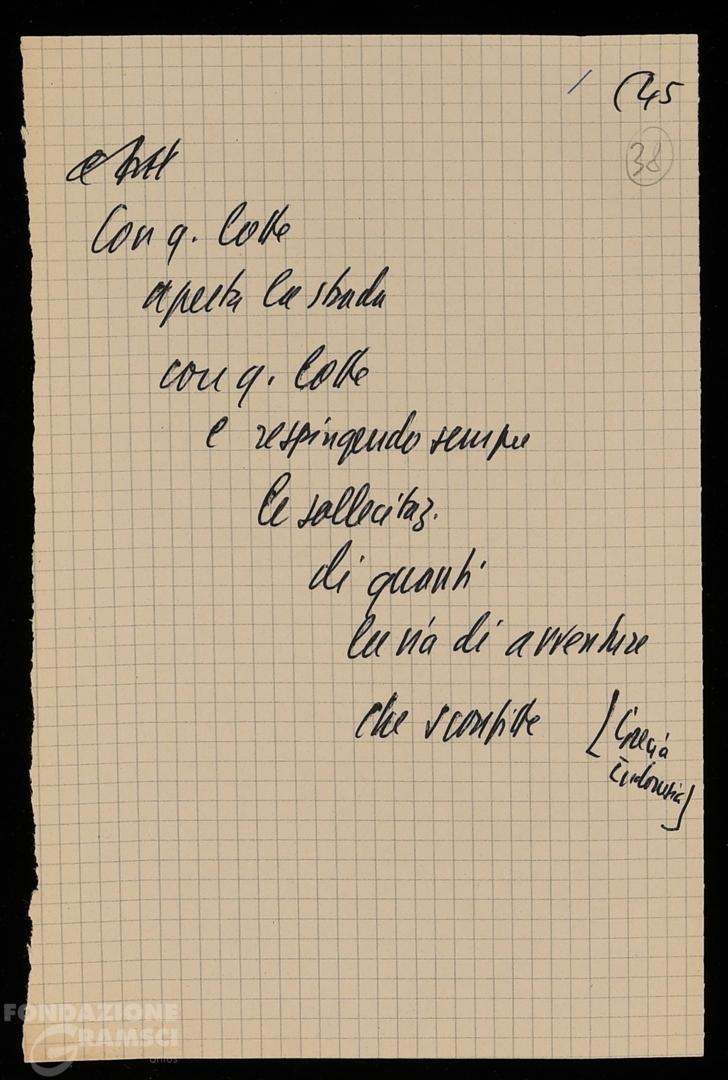 (45
38
Con q. lotte
aperta la strada
con q. lotte
e respingendo sempre
le sollecitaz.
di quanti
la via di avventure
che sconfitte [Grecia
Indonesia]
FONDAZIONE
GRAMSCI
onlus